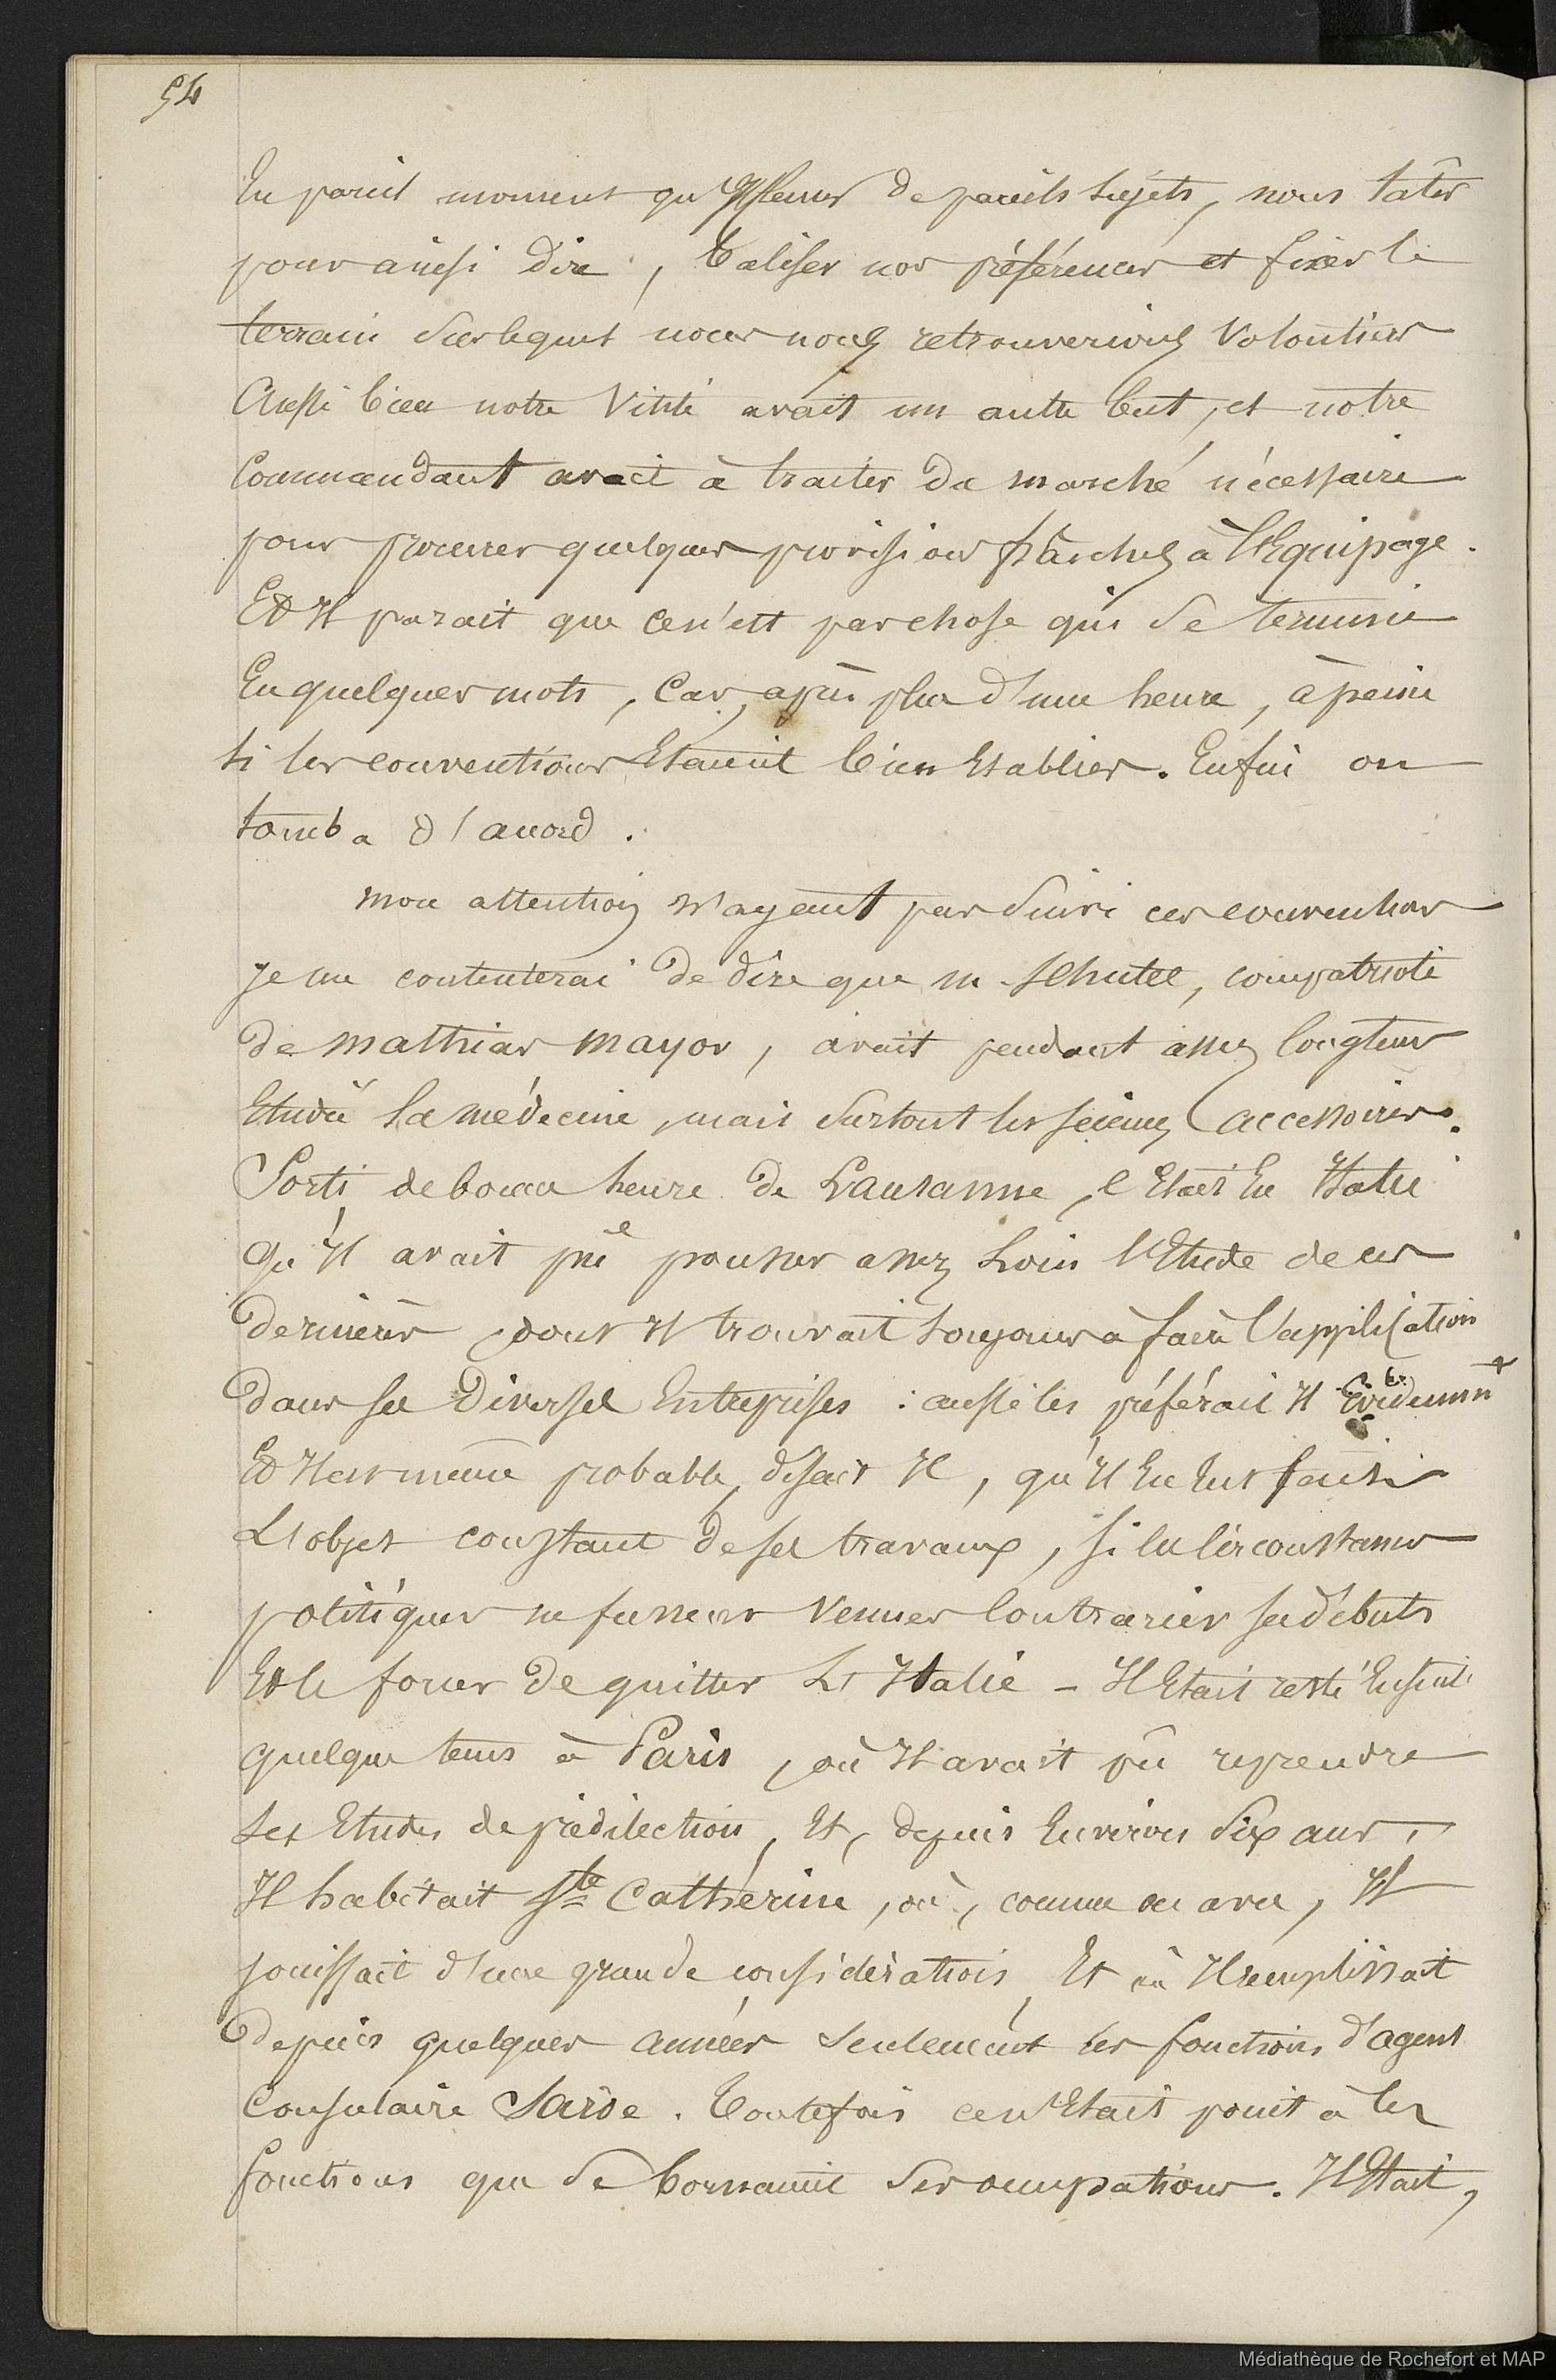 54
En pareil moment qu'effleurer de pareils sujets, nous tâter
pour ainsi dire, baliser nos préférences et fixer le
terrain sur lequel nous nous retrouverions volontiers
Aussi bien notre visite avait un autre but, et notre
Commandant avait à traiter du marché nécessaire
pour procurer quelques provisions fraîches à l'Equipage.
Et Il parait que ce n'est pas chose qui se termine
En quelques mots, Car, après plus d'une heure, à peine
si les conventions Etaient bien Etablies. Enfin on
tomba d'accord.
mon attention n'ayant pas suivi ces conventions
je me contenterai de dire que m. Schutel, compatriote
de mathias mayor, avait pendant assez longtems
Etudié la médecine, mais surtout les sciences accessoires.
Sorti de bonne heure de Lausanne, c'Etait En Italie
qu'Il avait pû pousser assez Loin l'Etude de ces
dernières, dont Il trouvait toujours à faire l'application
dans ses diverses Entreprises : aussi les préférait Il Evidemmt
Et Il est même probable, disait Il, qu'Il En Eut fait
L'objet constant de ses travaux, si les Circonstances
politiques ne fussent venues Contrarier ses débuts
Et le forcer de quitter L'Italie - Il Etait resté Ensuite
quelque tems à Paris, où Il avait pû reprendre
ses Etudes de prédilection, Et, depuis Environ Six ans,
Il habitait Ste Cathérine, où, comme on a vu, Il
jouissait d'une grande considération, Et où Il remplissait
depuis quelques années seulement les fonctions d'agent
Consulaire Sarde. Toutefois ce n'Etait point à les
fonctions que se bornaient ses occupations. Il Etait,
Médiathèque de Rochefort et MAP